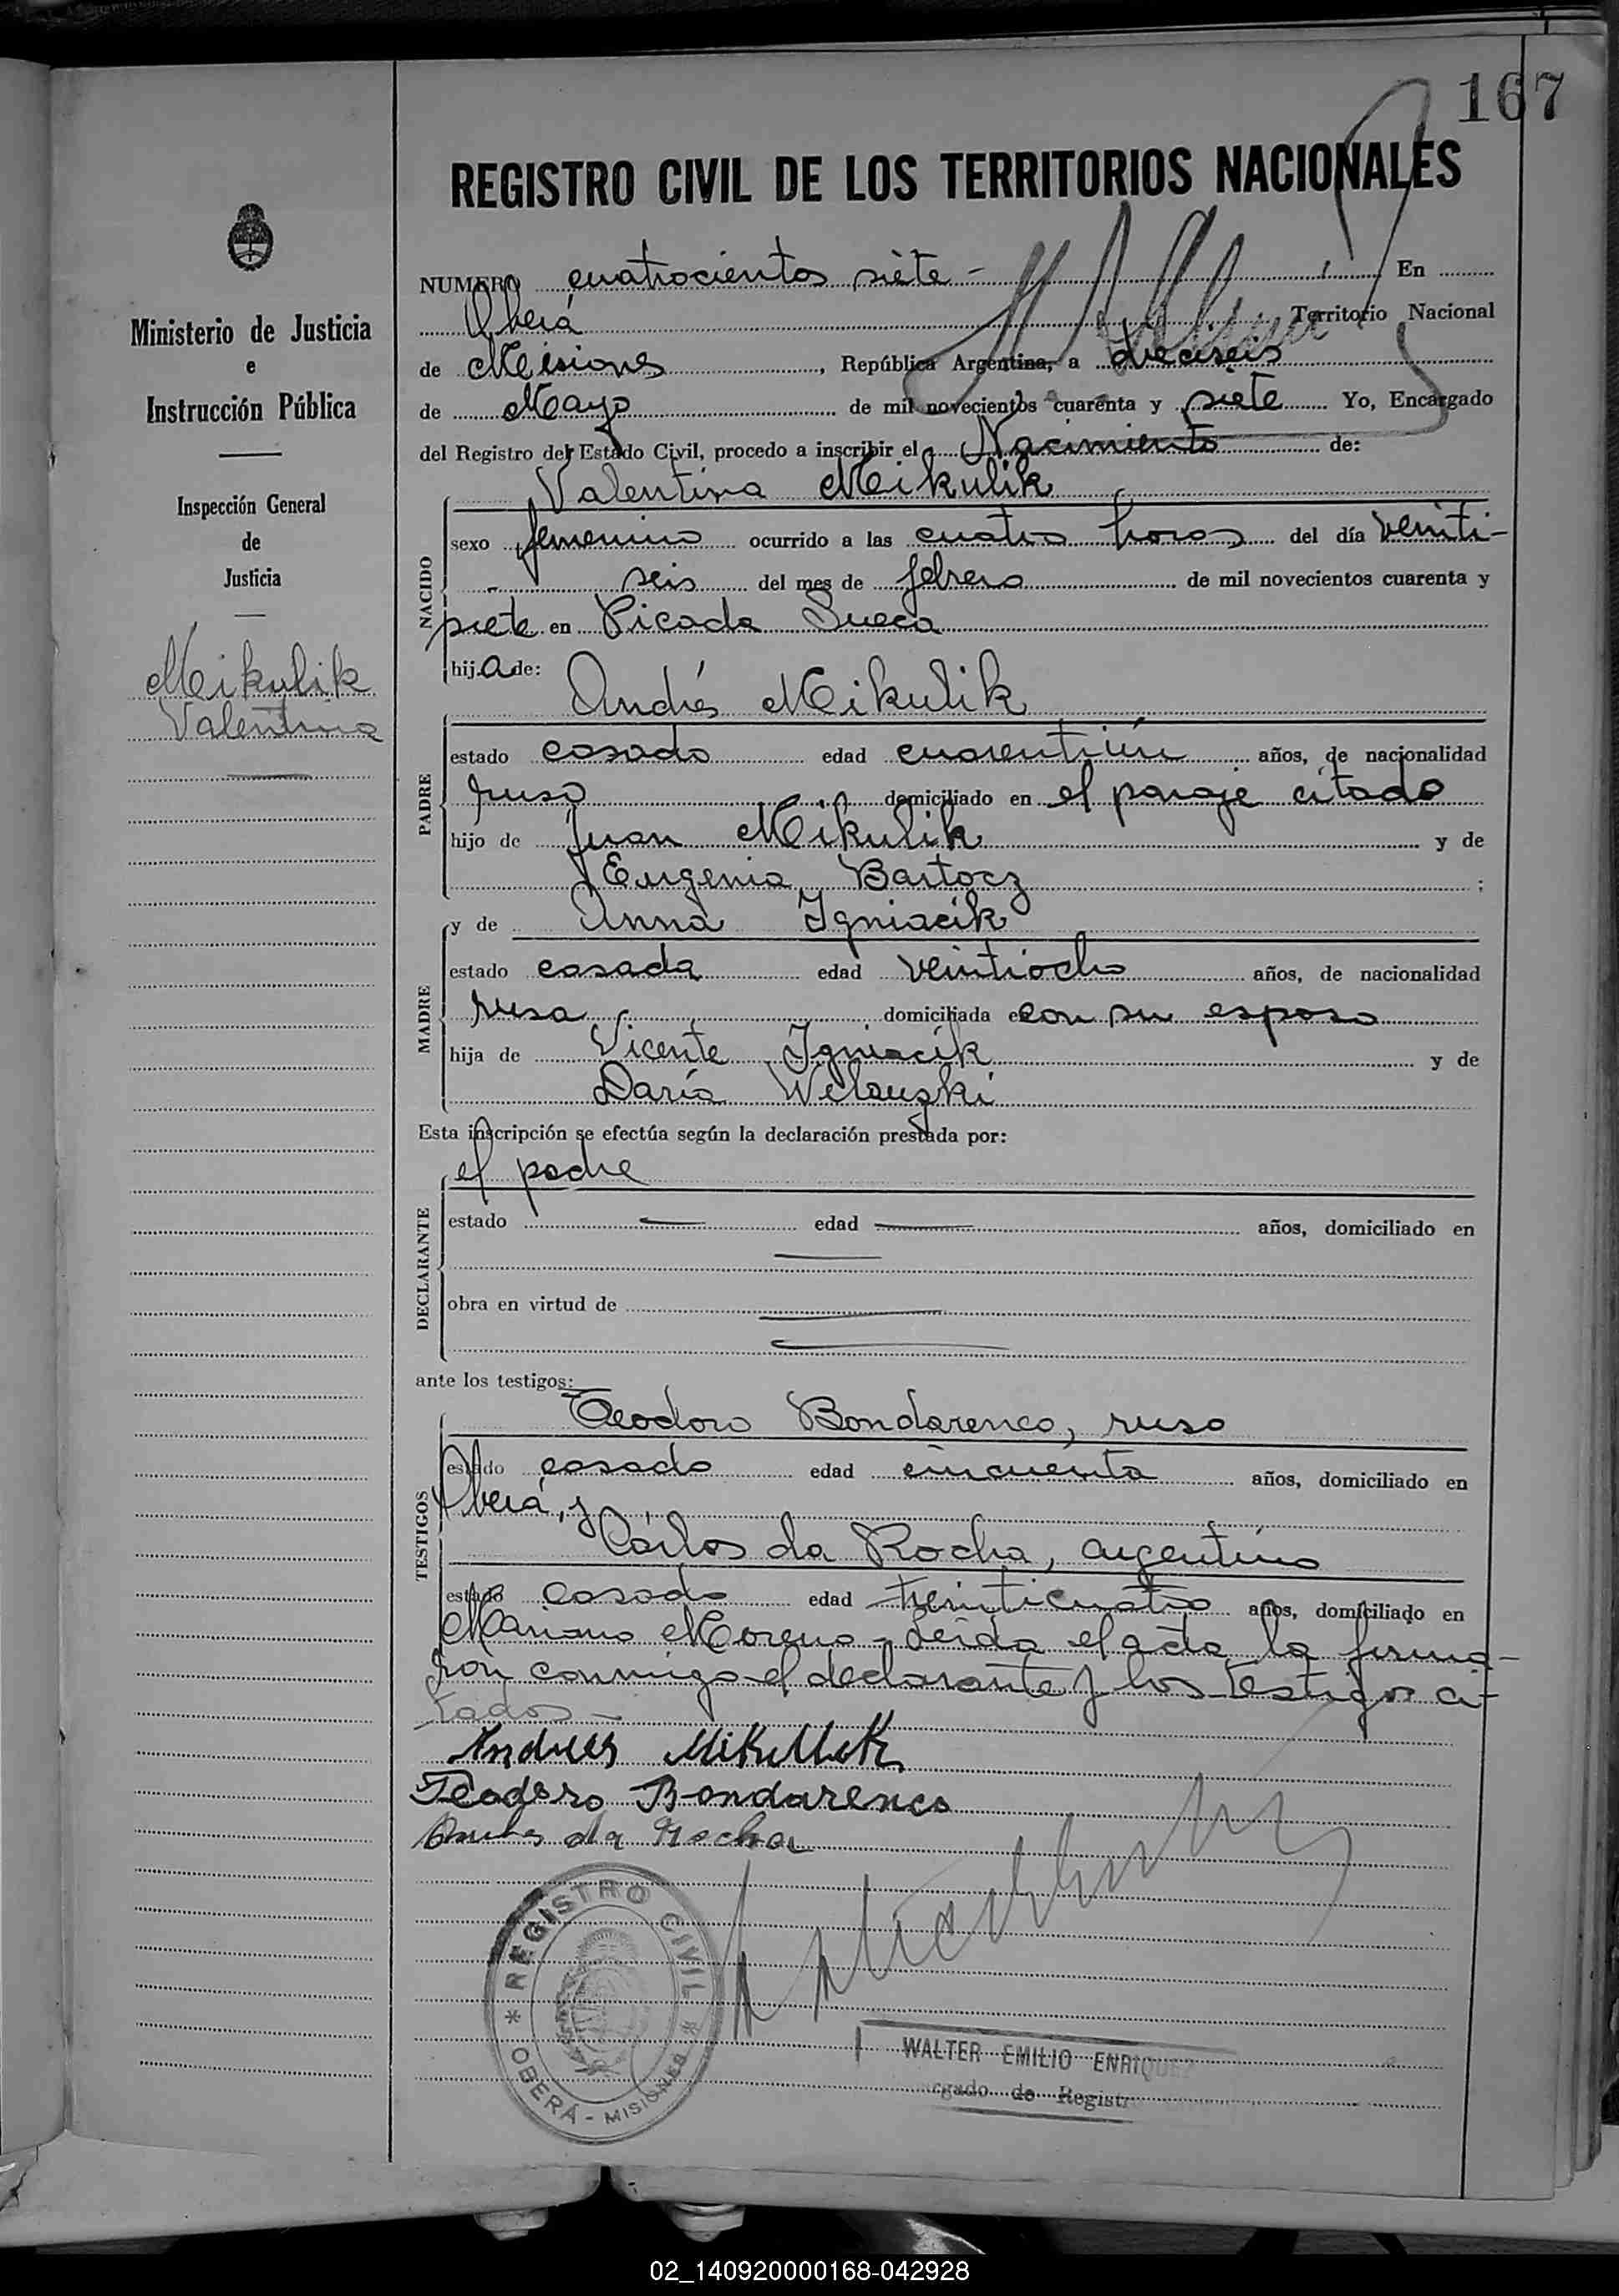 167
REGISTRO CIVIL DE LOS TERRITORIOS NACIONALES
Ministerio de Justicia
e
Instrucción Pública
Inspección General
de
Justicia
Mikulik
Valentina
NUMERO cuatrocientos siete - En
Oberá Territorio Nacional
de Misiones, República Argentina, a dieciseis
de Mayo de mil novecientos cuarenta y siete Yo, Encargado
del Registro del Estado Civil, procedo a inscribir el Nacimiento de:
Valentina Mikulik
NACIDO
sexo femenino ocurrido a las cuatro horas del día veinti-
seis del mes de febrero de mil novecientos cuarenta y
siete en Picada Sueca
hija de:
Andrés Mikulik
PADRE
estado casado edad cuarentiún años, de nacionalidad
ruso domiciliado en el paraje citado
hijo de Juan Mikulik y de
Eugenia Bartocz ;
y de Anna Igniacik
MADRE
estado casada edad veintiocho años, de nacionalidad
rusa domiciliada con su esposo
hija de Vicente Igniacik y de
Daría
Esta inscripción se efectúa según la declaración prestada por:
el padre
DECLARANTE
estado — edad — años, domiciliado en
obra en virtud de
ante los testigos:
Teodoro Bondarenco, ruso
TESTIGOS
estado casado edad cincuenta años, domiciliado en
Oberá, y
Cárlos da Rocha, argentino
estado casado edad treinticuatro años, domiciliado en
Mariano Moreno - Leida el acta la firma-
ron conmigo el declarante y los testigos ci-
tados -
Andres Mikulik
Teodoro Bondarenco
da Rocha
REGISTRO CIVIL
OBERÁ - MISIONES
WALTER EMILIO ENRIQUEZ
de Registro
02_140920000168-042928